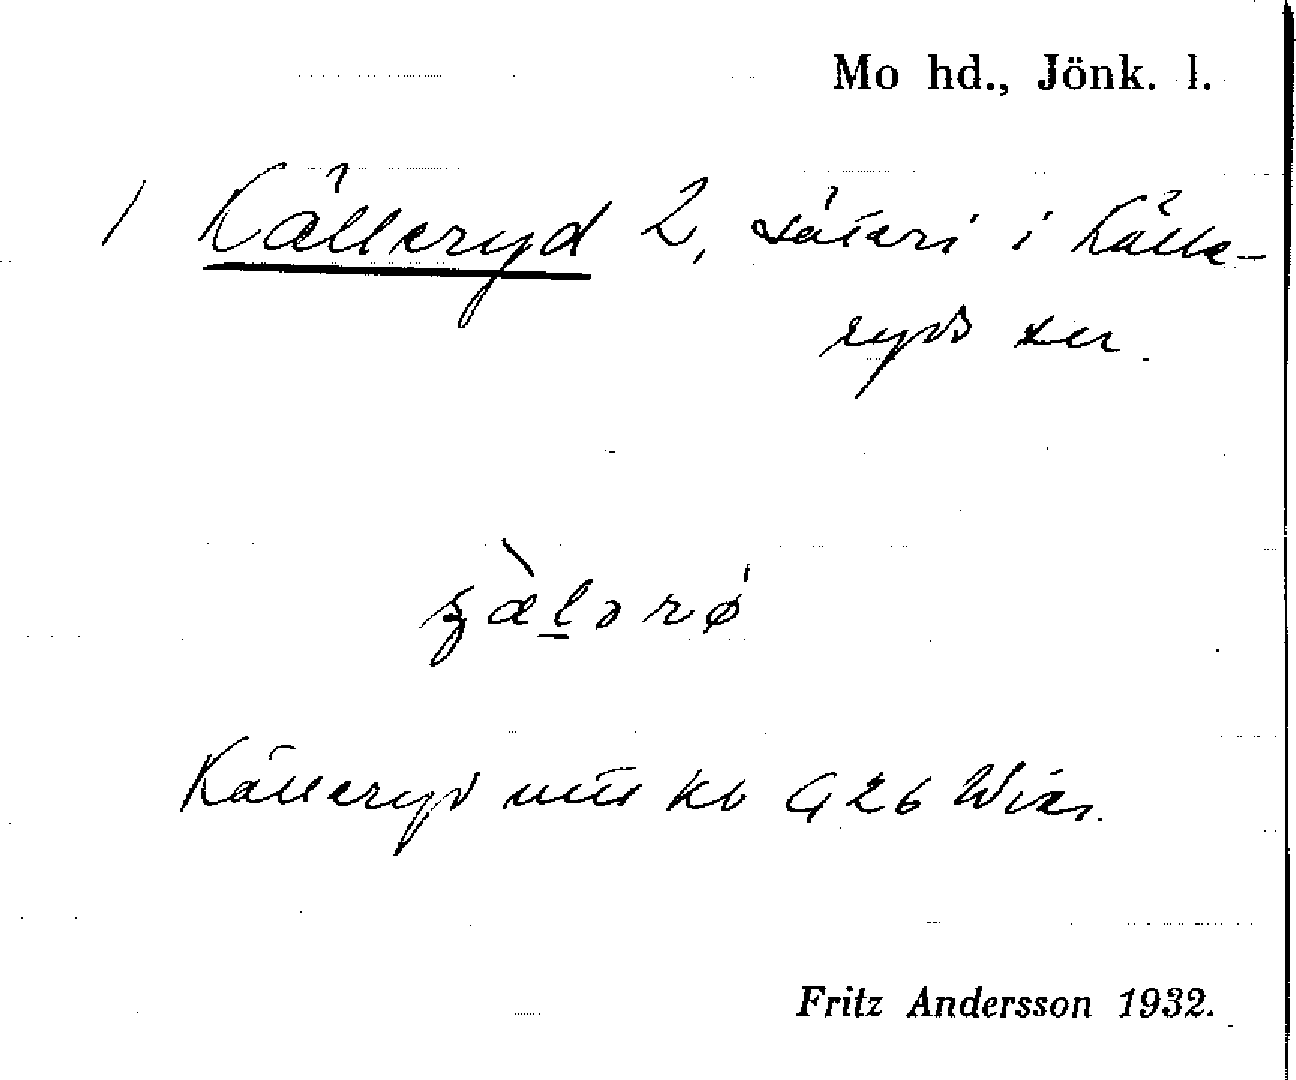 Mo hd., Jönk. l.
1 Källeryd 2, säteri i Källe-
ryds sn.
Källeryd utt kb G 26 Wixs.
Fritz Andersson 1932.